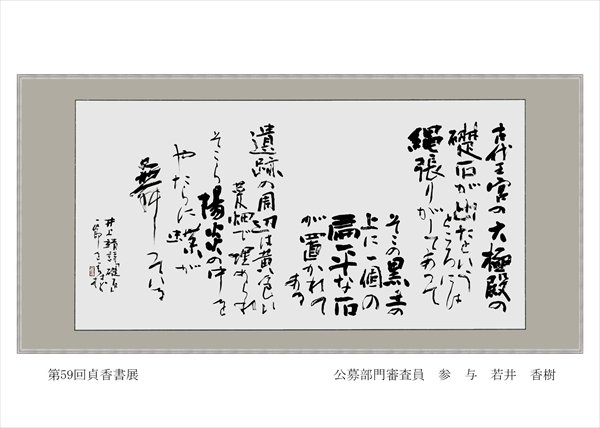 古代王宮の大極殿の
礎石が出たという
ところには
縄張りがしてあって
そこの黒土の
上に一個の
扁平な石
が置かれて
ある
遺跡の周辺は黄色い
畑で埋められ
そこら陽炎の中を
やたらに蝶が
舞っている
井上靖詩 礎石
第59回貞香書展
公募部門審査員 参 与 若井 香樹